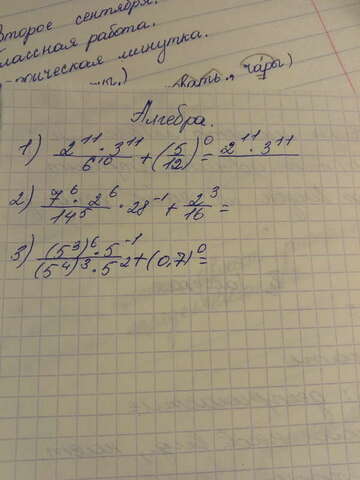 Второе сентября.
Классная работа.
минутка.
чары)
Алгебра.
1) 2^11 · 3^11 / 6^10 + (5/12)^0 = 2^11 · 3^11
2) 7^6 · 2^6 / 14^5 · 28^-1 + 2^3 / 16 =
3) (5^3)^6 · 5^-1 / (5^4)^3 · 5^2 + (0,7)^0 =